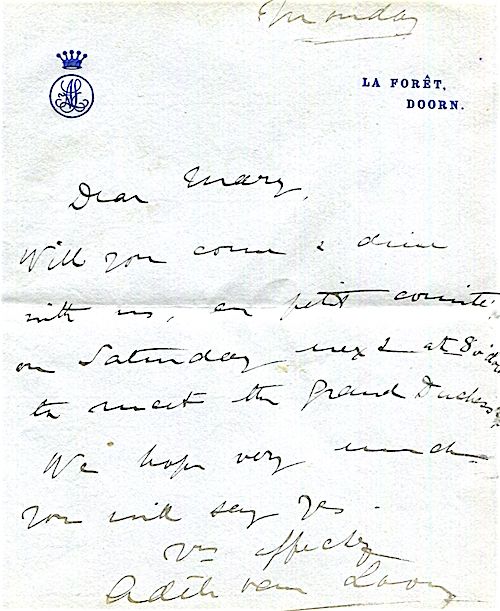 Monday
LA FORÊT,
DOORN.
Dear Mary,
Will you come & dine
with us, en petit comité,
on Saturday next at 8 o'clock
to meet the Grand Duchess
We hope very much
you will say yes.
Yrs affectly
van Loon